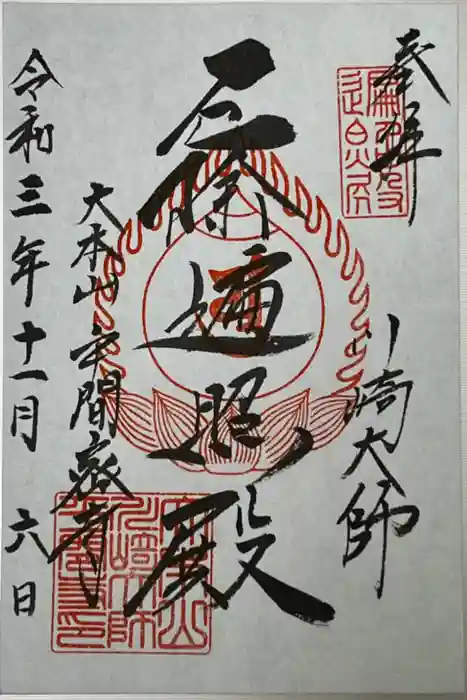 奉拝
川崎大師
厄除遍照殿
大本山平間寺
令和三年十一月六日